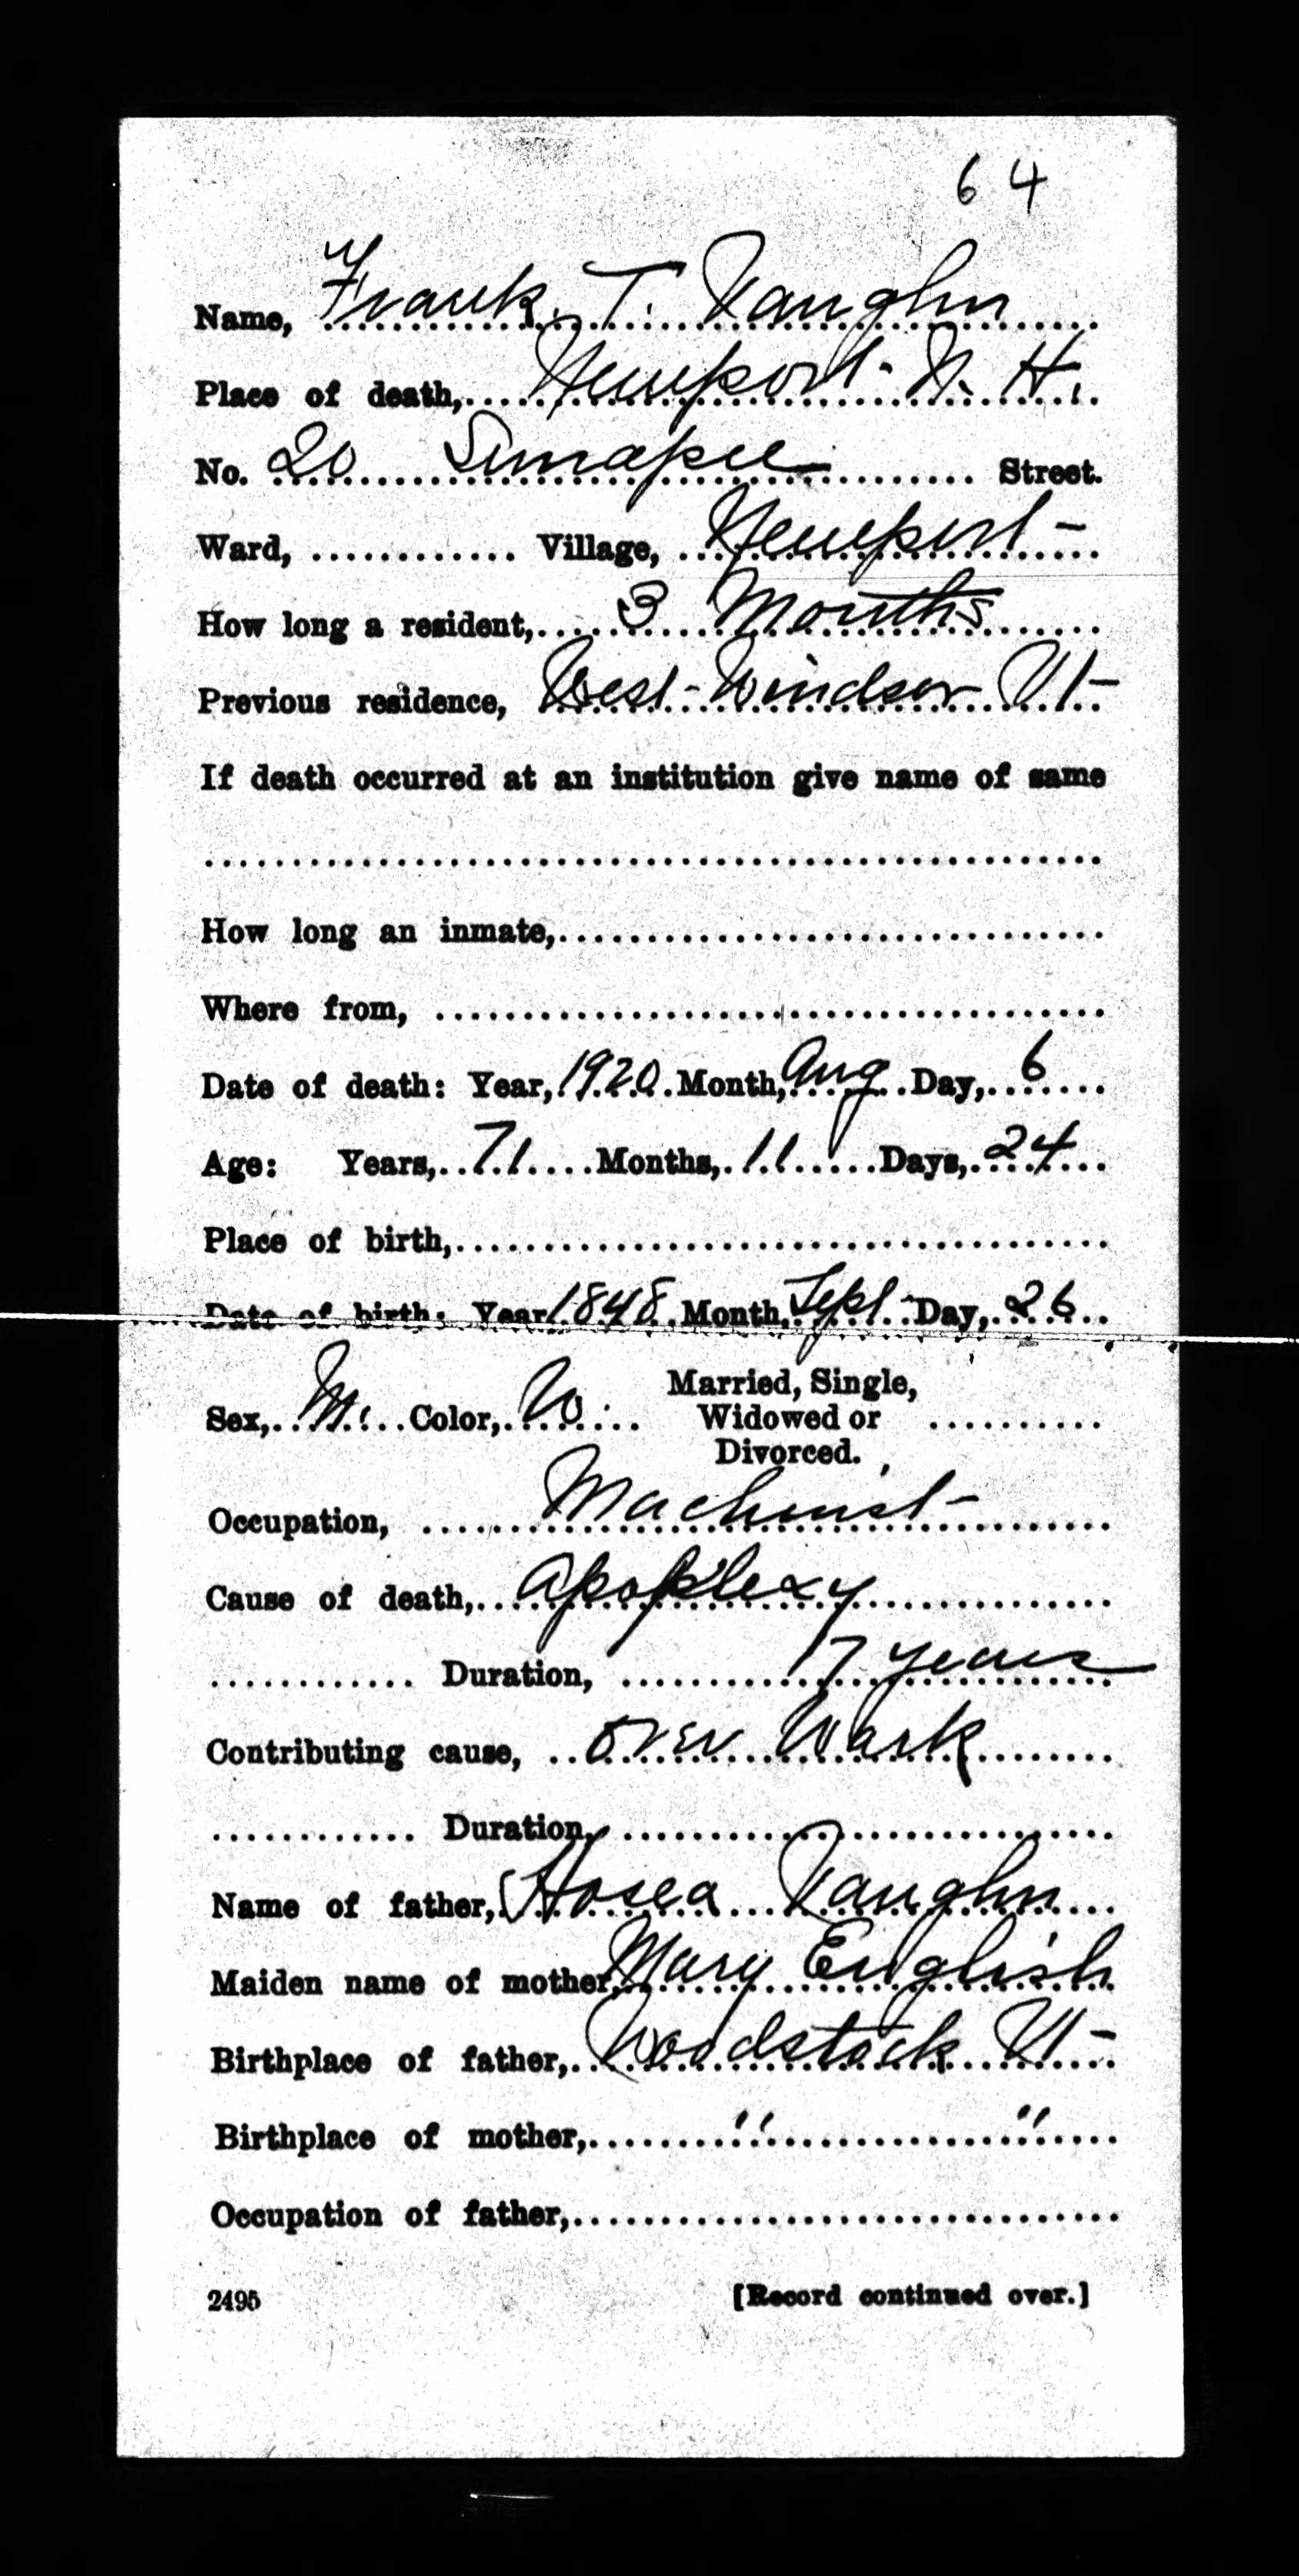 64
Name, Frank T. Vaughn
Place of death, Newport N. H.
No. 20 Sunapee Street.
Ward, ............ Village, Newport
How long a resident, 3 Months
Previous residence, West Windsor Vt
If death occurred at an institution give name of same
How long an inmate,
Where from,
Date of death: Year, 1920 Month, Aug Day, 6
Age: Years, 71 Months, 11 Days, 24
Place of birth,
Date of birth: Year 1848 Month, Sept Day, 26
Sex, M. Color, W. Married, Single, Widowed or Divorced.
Occupation, Machinist
Cause of death, Apoplexy
Duration, 7 years
Contributing cause, Over Work
Duration,
Name of father, Hosea Vaughn
Maiden name of mother, Mary English
Birthplace of father, Woodstock Vt
Birthplace of mother, " "
Occupation of father,
2495 [Record continued over.]